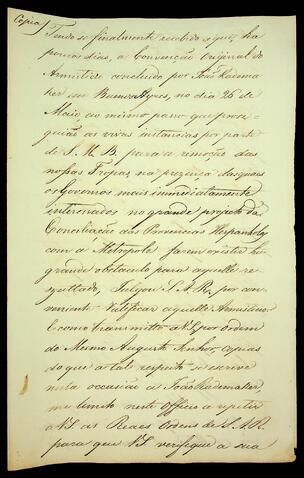 Copia
Tendo se finalmente recebido aqui, ha
poucos dias, a Convenção Original do
Armisticio concluido por João Radema
ker em Buenos Ayres, no dia 26 de
Maio, ao mesmo passo que prose
guião as vivas instancias por parte
de S. M. B. para a remoção das
nossas Tropas, na prezença das quaes
os Governos mais immediatamente
interessados no grande projecto da
Conciliação das Provincias Hespanholas
com a Metropole fazem existir hu
grande obstaculo para aquelle re
zultado, Julgou S. A. R. por con
veniente ratificar aquelle Armisticio
e como transmitto a VS por ordem
do Mesmo Augusto Senhor, copias
do que a tal respeito se escreve
nesta occasião a João Rademaker,
me limito neste Officio a repetir
a VS as Reaes Ordens de S. A. R.
para que VS verifique a sua